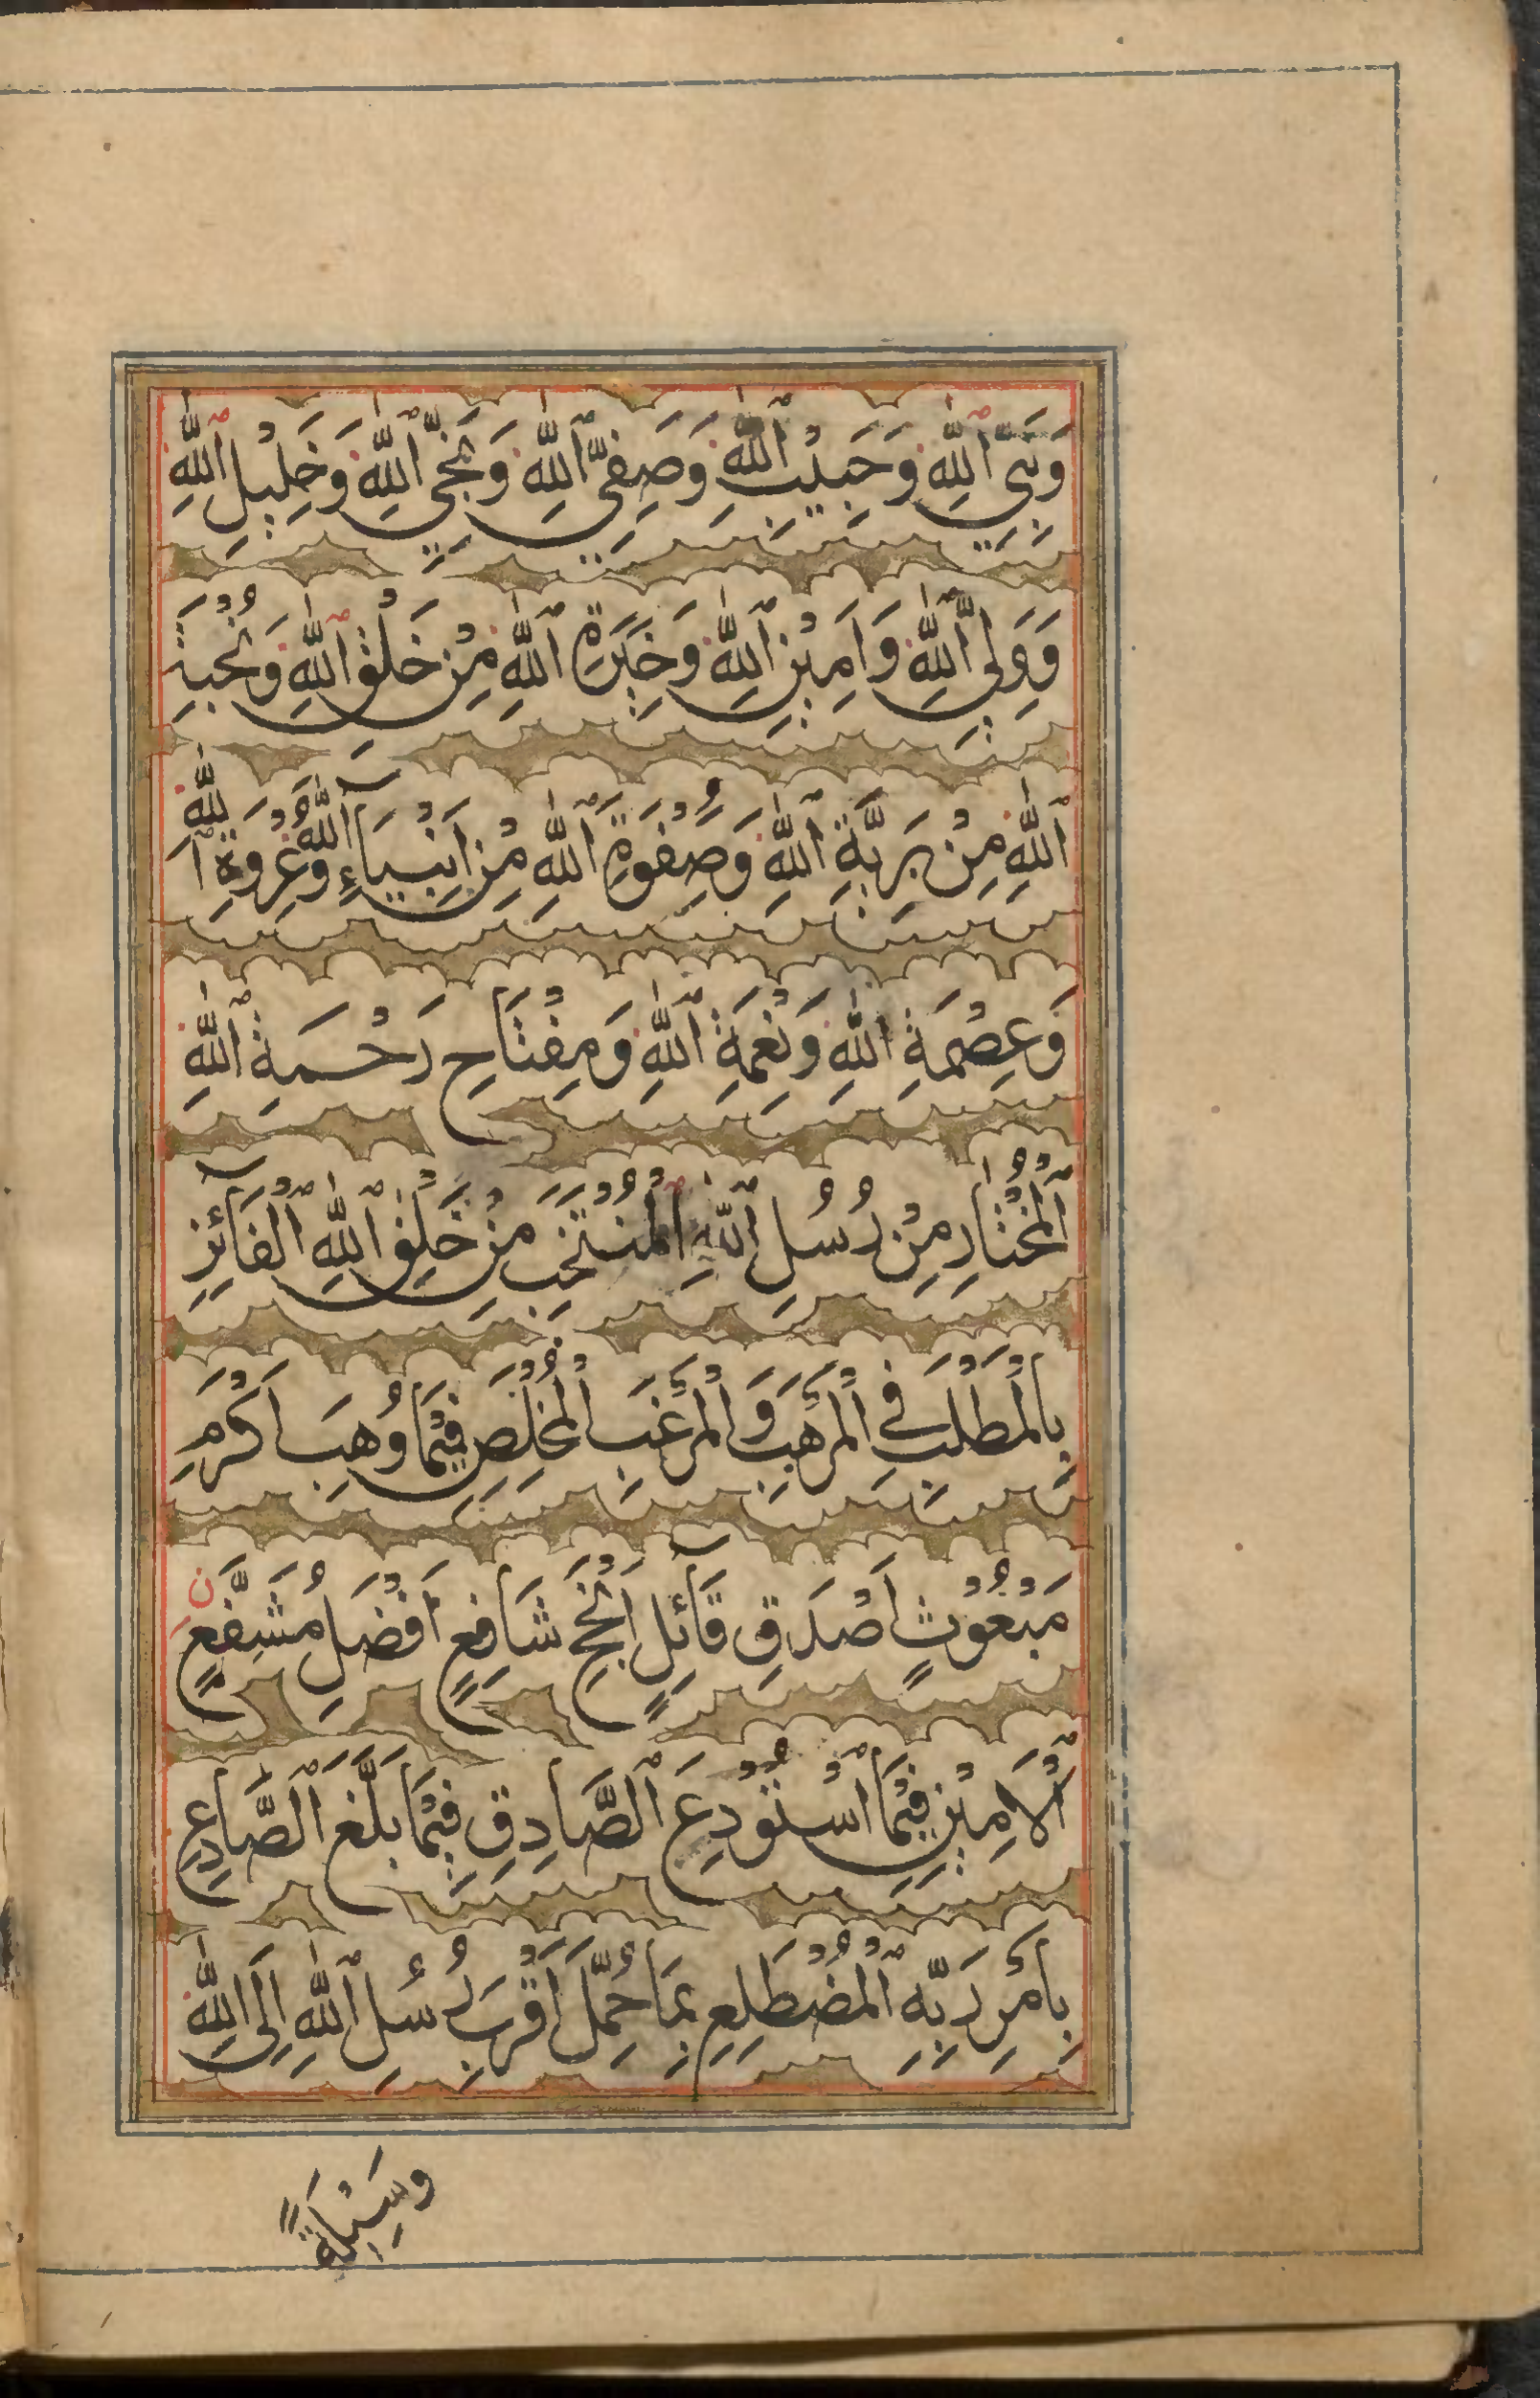 وَنَبِيِّ ٱللّٰهِ وَحَبِيْبِ ٱللّٰهِ وَصَفِيِّ ٱللّٰهِ وَنَجِيِّ ٱللّٰهِ وَخَلِيْلِ ٱللّٰهِ
وَوَلِيِّ ٱللّٰهِ وَاَمِيْنِ ٱللّٰهِ وَخِيَرَةِ ٱللّٰهِ مِنْ خَلْقِ ٱللّٰهِ وَنُخْبَةِ
ٱللّٰهِ مِنْ بَرِيَّةِ ٱللّٰهِ وَصَفْوَةِ ٱللّٰهِ مِنْ اَنْبِيَآءِ ٱللّٰهِ وَعُرْوَةِ ٱللّٰهِ
وَعِصْمَةِ ٱللّٰهِ وَنِعْمَةِ ٱللّٰهِ وَمِفْتَاحِ رَحْمَةِ ٱللّٰهِ
ٱلْمُخْتَارِ مِنْ رُسُلِ ٱللّٰهِ ٱلْمُنْتَخَبِ مِنْ خَلْقِ ٱللّٰهِ ٱلْفَآئِزِ
بِالْمَطْلَبِ فِي الْمَرْهَبِ وَالْمَرْغَبِ الْمُخْلَصِ فِيْمَا وُهِبَ اَكْرَمِ
مَبْعُوْثٍ اَصْدَقِ قَآئِلٍ اَنْجَحِ شَافِعٍ اَفْضَلِ مُشَفَّعٍ ن
ٱلْاَمِيْنِ فِيْمَا ٱسْتُوْدِعَ ٱلصَّادِقِ فِيْمَا بَلَّغَ ٱلصَّادِعِ
بِاَمْرِ رَبِّهِ ٱلْمُضْطَلِعِ بِمَا حُمِّلَ اَقْرَبِ رُسُلِ ٱللّٰهِ اِلَى اللّٰهِ
وَسِيْلَةً